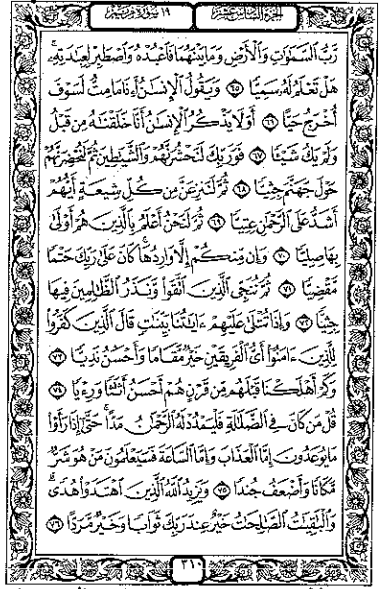 الجزء السادس عشر ١٩ سورة مريم
رَّبُّ السَّمَٰوَٰتِ وَالْأَرْضِ وَمَا بَيْنَهُمَا فَاعْبُدْهُ وَاصْطَبِرْ لِعِبَٰدَتِهِۦ ۚ
هَلْ تَعْلَمُ لَهُۥ سَمِيًّا ﴿٦٥﴾ وَيَقُولُ الْإِنسَٰنُ أَءِذَا مَا مِتُّ لَسَوْفَ
أُخْرَجُ حَيًّا ﴿٦٦﴾ أَوَلَا يَذْكُرُ الْإِنسَٰنُ أَنَّا خَلَقْنَٰهُ مِن قَبْلُ
وَلَمْ يَكُ شَيْـًٔا ﴿٦٧﴾ فَوَرَبِّكَ لَنَحْشُرَنَّهُمْ وَالشَّيَٰطِينَ ثُمَّ لَنُحْضِرَنَّهُمْ
حَوْلَ جَهَنَّمَ جِثِيًّا ﴿٦٨﴾ ثُمَّ لَنَنزِعَنَّ مِن كُلِّ شِيعَةٍ أَيُّهُمْ
أَشَدُّ عَلَى الرَّحْمَٰنِ عِتِيًّا ﴿٦٩﴾ ثُمَّ لَنَحْنُ أَعْلَمُ بِالَّذِينَ هُمْ أَوْلَىٰ
بِهَا صِلِيًّا ﴿٧٠﴾ وَإِن مِّنكُمْ إِلَّا وَارِدُهَا ۚ كَانَ عَلَىٰ رَبِّكَ حَتْمًا
مَّقْضِيًّا ﴿٧١﴾ ثُمَّ نُنَجِّى الَّذِينَ اتَّقَوا وَّنَذَرُ الظَّٰلِمِينَ فِيهَا
جِثِيًّا ﴿٧٢﴾ وَإِذَا تُتْلَىٰ عَلَيْهِمْ ءَايَٰتُنَا بَيِّنَٰتٍ قَالَ الَّذِينَ كَفَرُوا
لِلَّذِينَ ءَامَنُوا أَىُّ الْفَرِيقَيْنِ خَيْرٌ مَّقَامًا وَأَحْسَنُ نَدِيًّا ﴿٧٣﴾
وَكَمْ أَهْلَكْنَا قَبْلَهُم مِّن قَرْنٍ هُمْ أَحْسَنُ أَثَٰثًا وَرِءْيًا ﴿٧٤﴾
قُلْ مَن كَانَ فِى الضَّلَٰلَةِ فَلْيَمْدُدْ لَهُ الرَّحْمَٰنُ مَدًّا ۚ حَتَّىٰ إِذَا رَأَوْا
مَا يُوعَدُونَ إِمَّا الْعَذَابَ وَإِمَّا السَّاعَةَ فَسَيَعْلَمُونَ مَنْ هُوَ شَرٌّ
مَّكَانًا وَأَضْعَفُ جُندًا ﴿٧٥﴾ وَيَزِيدُ اللَّهُ الَّذِينَ اهْتَدَوْا هُدًى ۗ
وَالْبَٰقِيَٰتُ الصَّٰلِحَٰتُ خَيْرٌ عِندَ رَبِّكَ ثَوَابًا وَخَيْرٌ مَّرَدًّا ﴿٧٦﴾
٣١٠